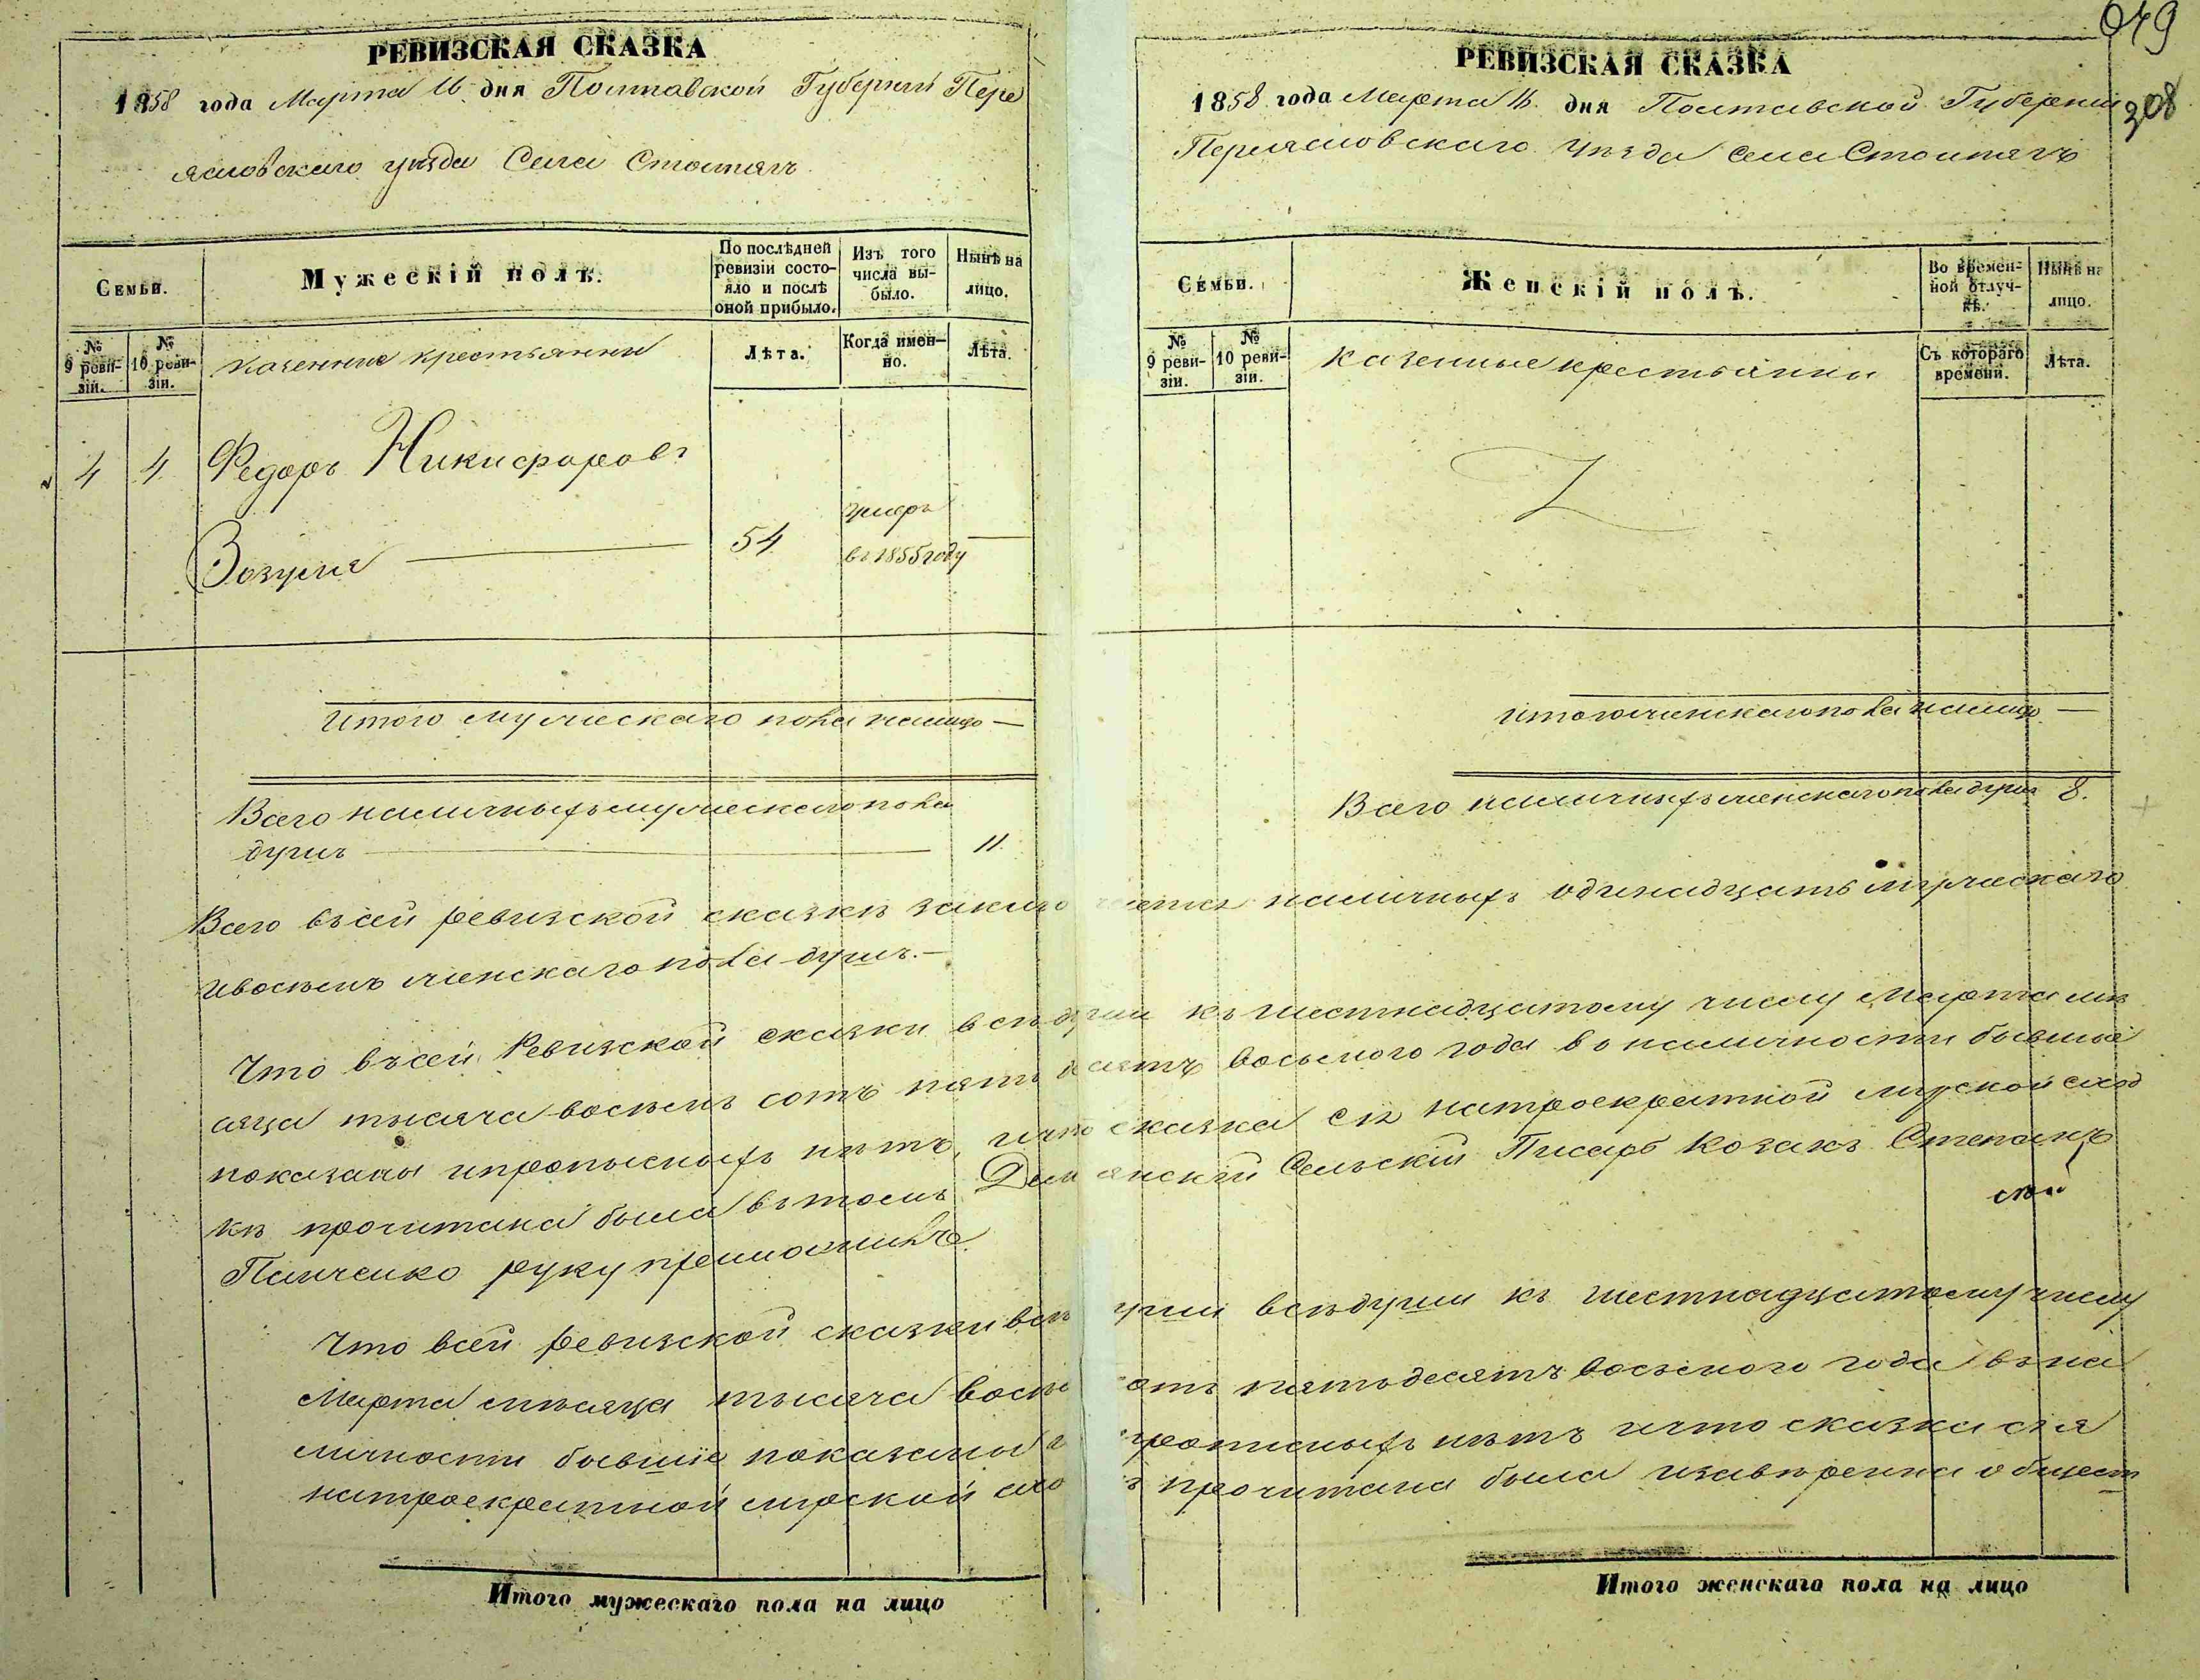 РЕВИЗСКАЯ СКАЗКА
1858 года Марта 16 дня Полтавской Губерніи Пере
яславскаго уѣзда Села Стовпягъ
Семьи.
Мужескій полъ.
По послѣдней ревизіи состояло и послѣ оной прибыло.
Изъ того числа выбыло.
Нынѣ на лицо.
№ 9 ревизіи.
№ 10 ревизіи.
казенные крестьянни
Лѣта.
Когда именно.
Лѣта.
4 4 Федоръ Никифоровъ
Зозуля 54 умеръ въ 1855 году —
Итого мужескаго пола налицо —
Всего наличныхъ мужескаго пола
душъ 11.
РЕВИЗСКАЯ СКАЗКА
679
1858 года Марта 16 дня Полтавской Губерніи
308
Переяславскаго уѣзда Села Стовпягъ
Семьи.
Женскій полъ.
Во временной отлучкѣ.
Нынѣ на лицо.
№ 9 ревизіи.
№ 10 ревизіи.
казенные крестьянки
Съ котораго времени.
Лѣта.
Итого женскаго пола налицо —
Всего наличныхъ женскаго пола душъ 8.
Всего въ сей ревизской сказкѣ заключается наличныхъ одинадцать мужескаго
и восѣмъ женскаго пола душъ.—
Что въ сей Ревизской сказки всѣ души къ шестнадцатому числу Марта мѣ
сяца тысяча восѣмъ сотъ пятьдесятъ восьмого года во наличности бывшіе
показаны и прописныхъ нѣтъ, и что сказка сія на троекратной мирской сход
кѣ прочитана была въ томъ Демянскій Селѣскій Писарь козакъ Степанъ
Панченко руку приложилъ
Что всей ревизской сказки всѣ души всѣ души къ шестнадцатому числу
Марта мѣсяца тысяча восѣмъ сотъ пятьдесятъ восѣмого года въ на
личности бывшіе показаны и прописныхъ нѣтъ и что сказка сія
на троекратной мирской схо прочитана была и завѣренна общест
Итого мужескаго пола на лицо
Итого женскаго пола на лицо